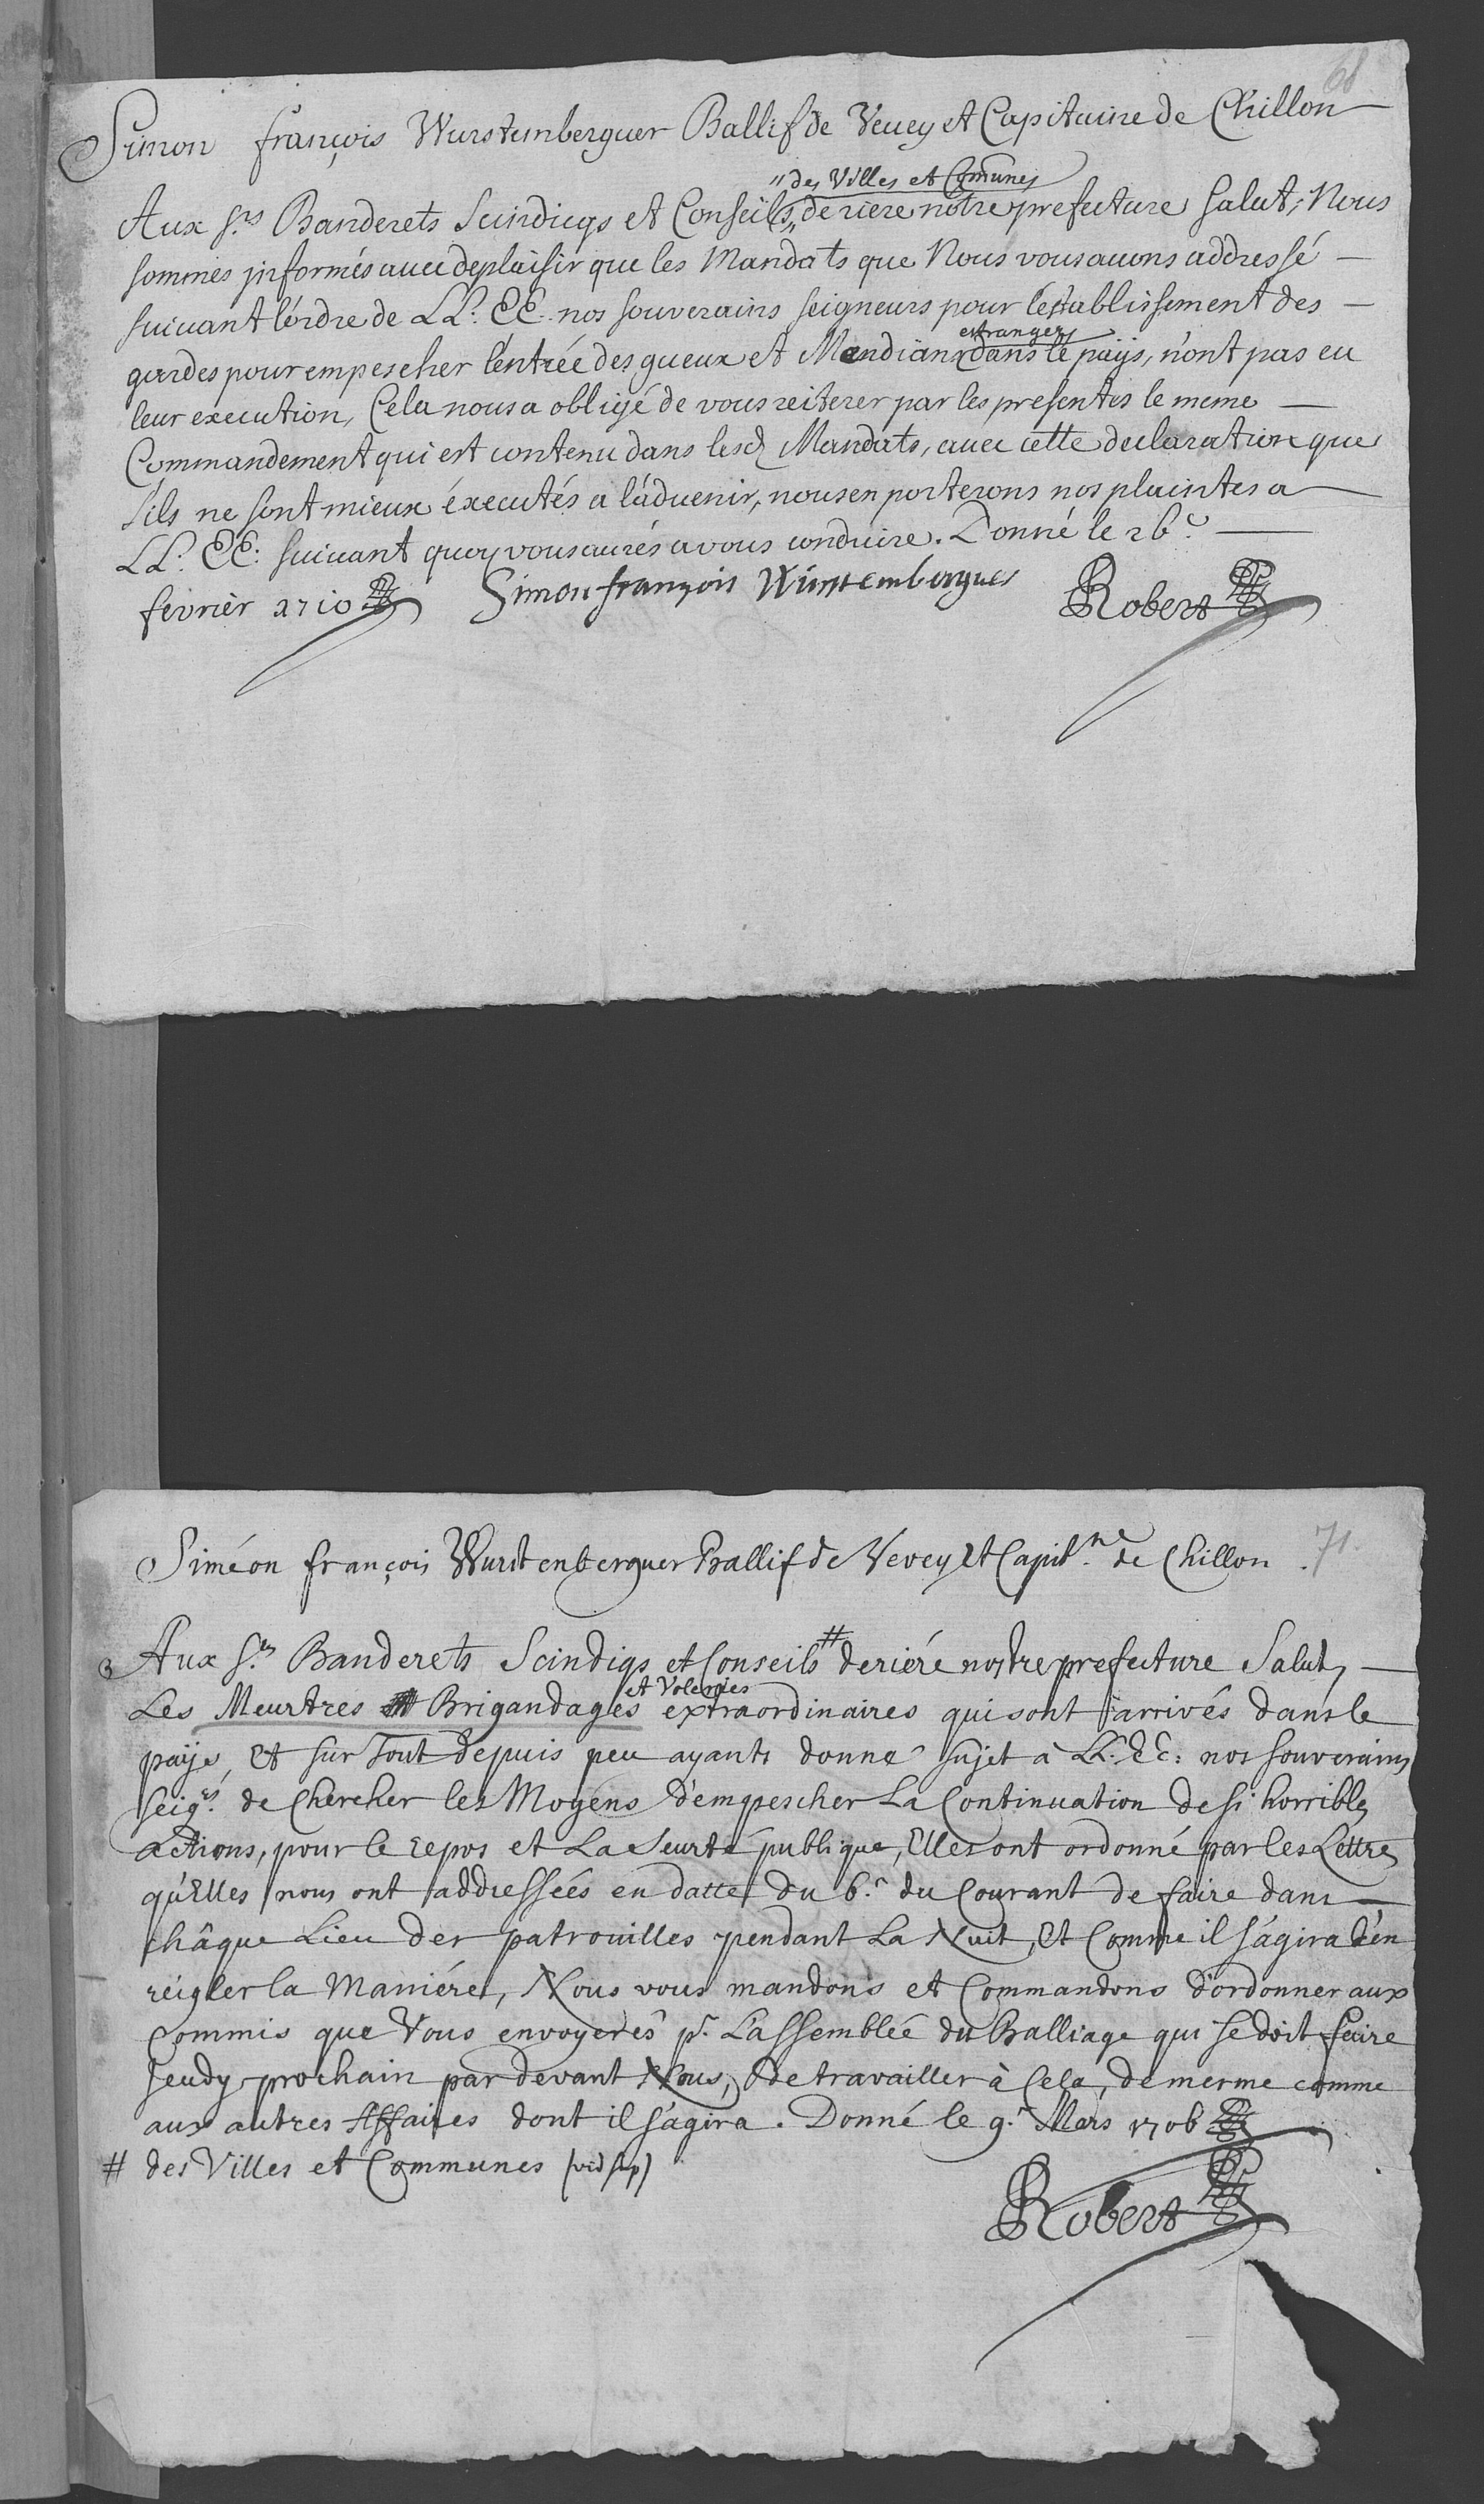 68
Simon françois Wurstemberguer Ballif de Veuey et Capitaine de Chillon
"des Villes et Comunes
Aux s.rs Banderets Scindiqs et Conseils, derière nôtre prefecture salut; Nous
sommes jnformés auec deplaisir que les Mandats que Nous vous auons addressé
suiuant l'ordre de LL. EE. nos souverains seigneurs pour l'establissement des
estrangers
gardes pour empescher l'entrée des gueux et Mendians dans le païjs, n'ont pas eu
leur execution, Cela nous a obligé de vous reiterer par les presentes le meme
Commandement qui est contenu dans lesd. Mandats, auec cette declaration que
s'ils ne sont mieux éxecutés a l'aduenir, nous en porterons nos plaintes a
LL. EE: suiuant quoy vous aurés a vous conduire. Donné le 26.e
fevrièr 1710 Simon françois Würstemberguer Robert
71.
Siméon françois Wurstenberguer Ballif de Vevey et Capit.ne de Chillon.
Aux s.rs Banderets Scindiqs et Conseils # deriére nostre prefecture Salut,
et Voleries
Les Meurtres Brigandages extraordinaires qui sont arrivés dans le
païjs, Et sur Tout depuis peu ayants donné sujet à LL. EE: nos souverains
seig.rs de Chercher les Moyens d'empescher La Continuation de si horribles
actions, pour le repos et La seurté publique, Elles ont ordonné par les Lettres
qu'Elles nous ont addressées en datte du 6.e du Courant de faire dans
châque Lieu des patrouilles pendant La Nuit, Et Comme il s'agira d'en
réigler la Maniére, Nous vous mandons et Commandons d'ordonner aux
Commis que Vous envoyerés p.r L'assemblée du Balliage qui se doit faire
Jeudy prochain par devant Nous, de travailler à Cela, de mesme comme
aux autres Affaires dont il s'agira. Donné le 9.e Mars 1706
# des Villes et Communes (vid sup)
Robert